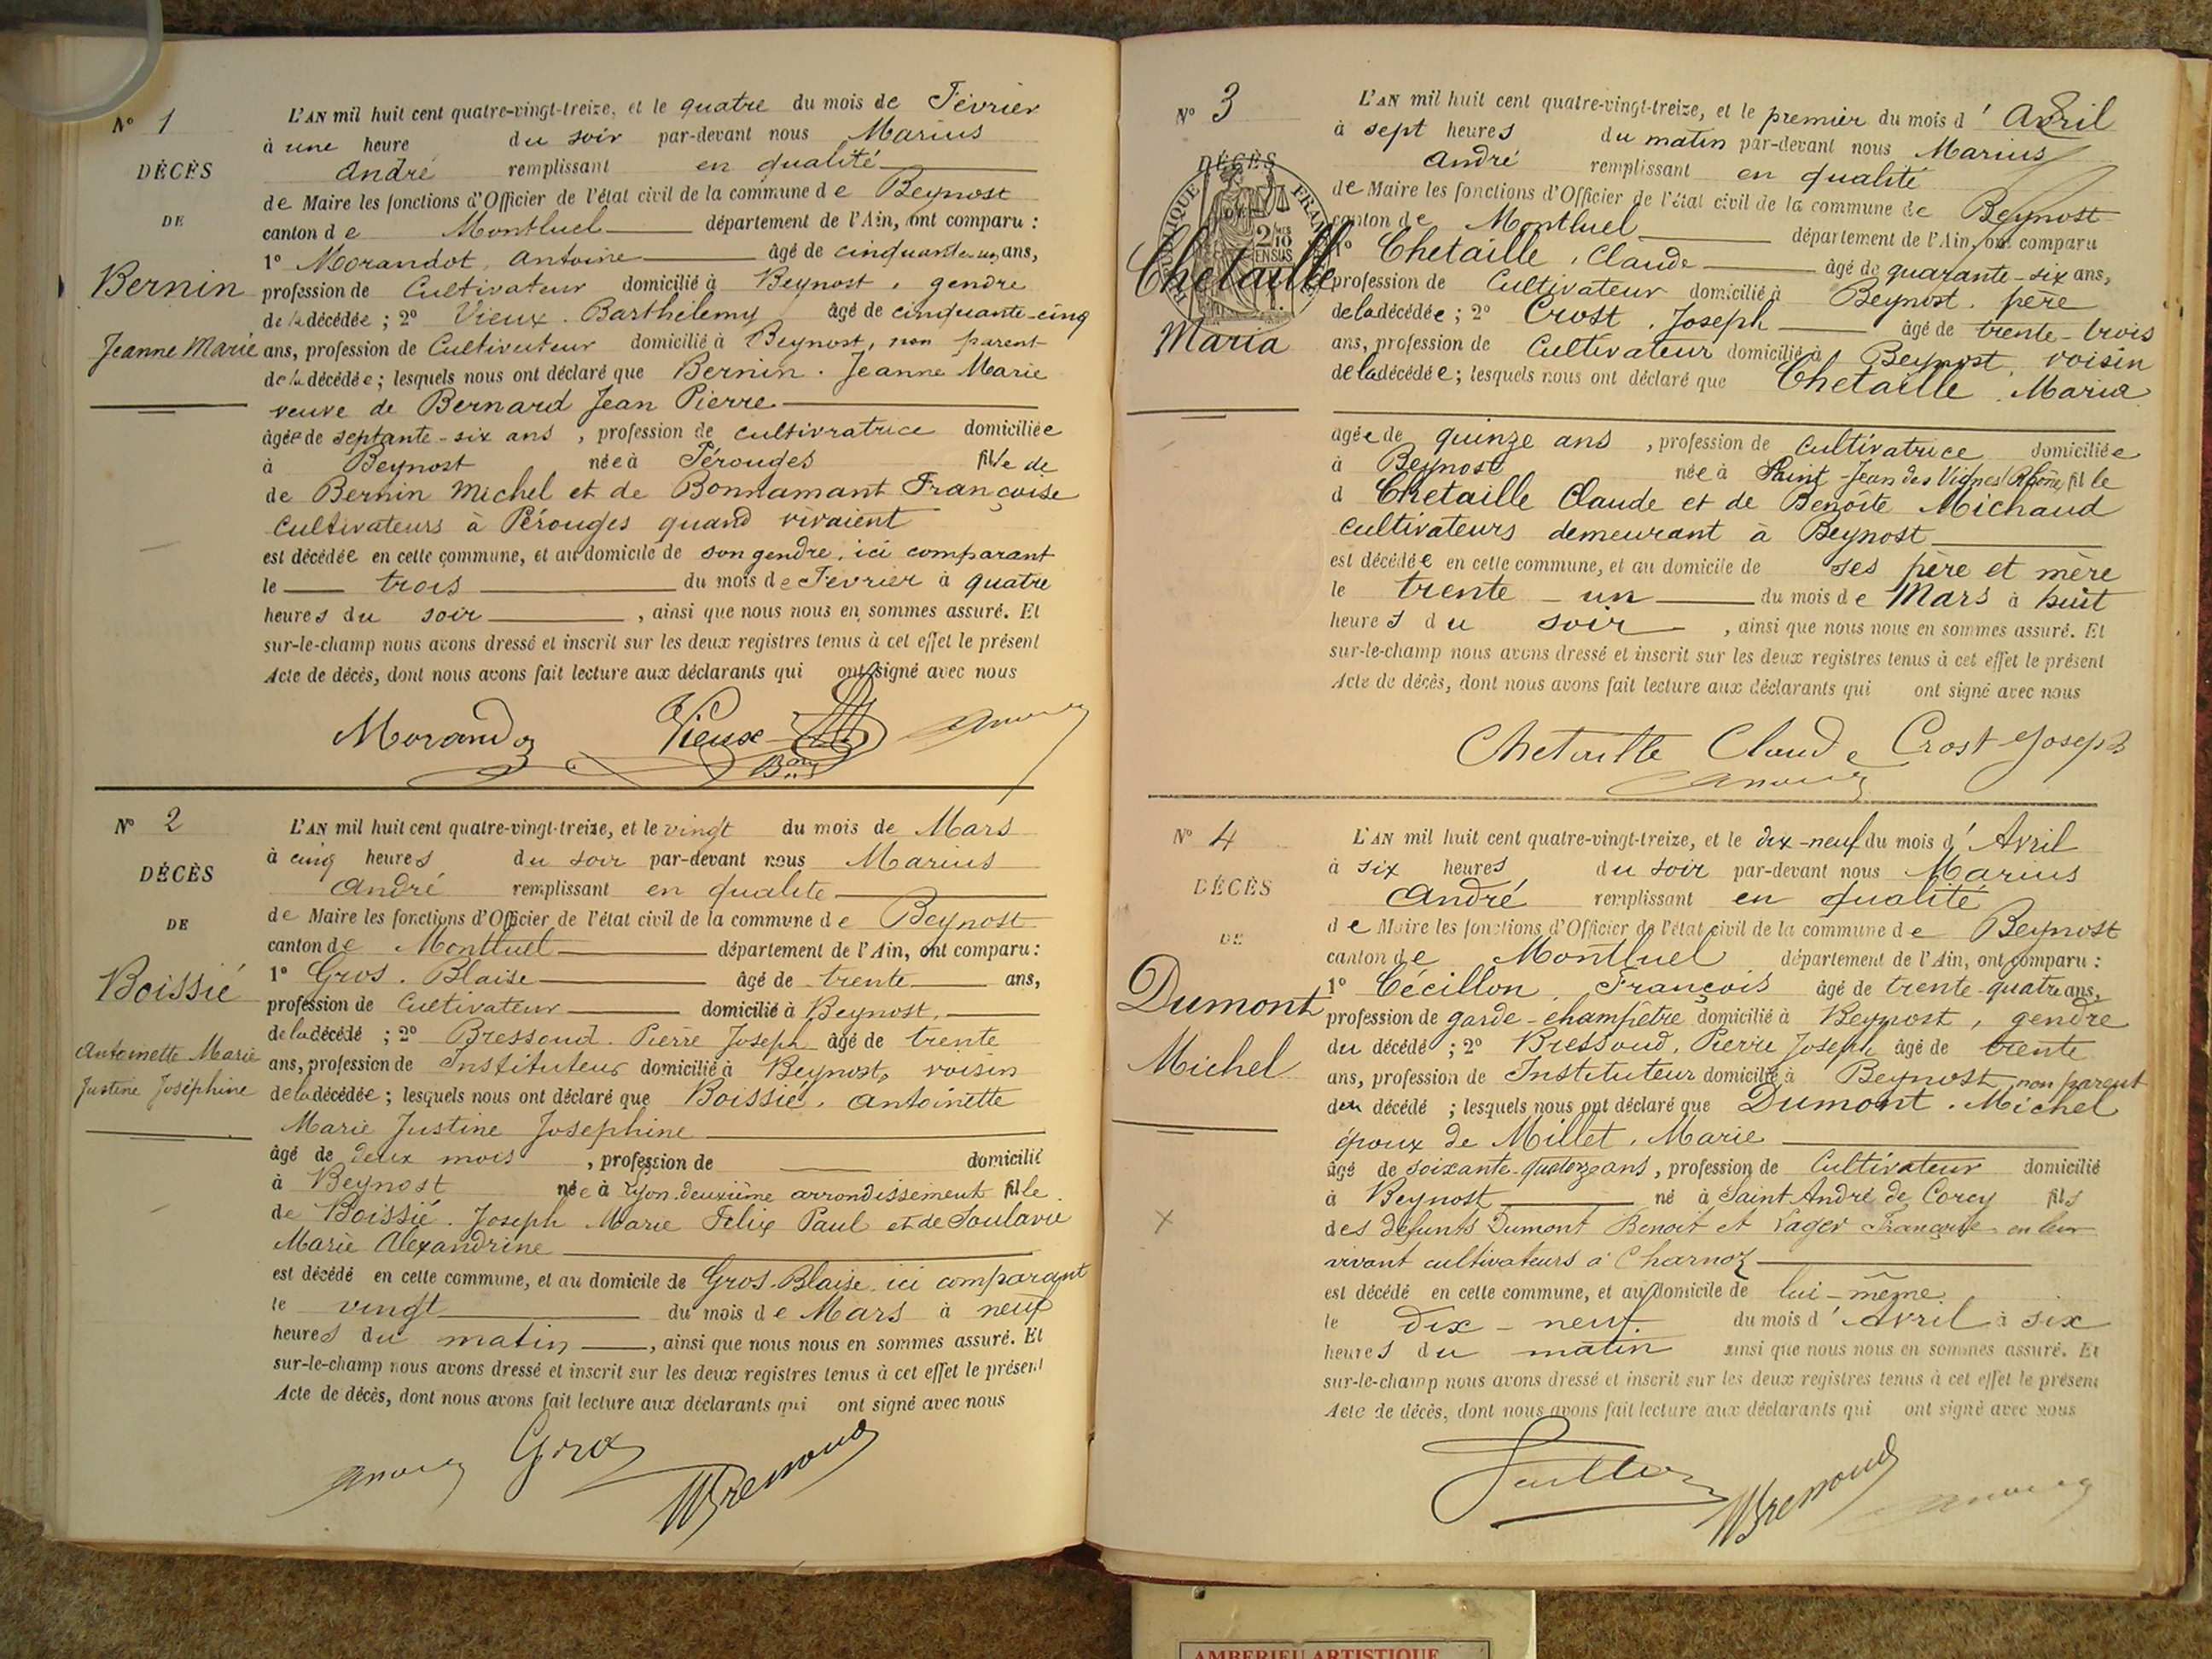 N° 1
DÉCÈS
DE
Bernin
Jeanne Marie
L'AN mil huit cent quatre-vingt-treize, et le quatre du mois de Février
à une heure du soir par-devant nous Marius
André remplissant en qualité
de Maire les fonctions d'Officier de l'état civil de la commune de Beynost
canton de Montluel département de l'Ain, ont comparu :
1° Morandot, Antoine âgé de cinquante-un ans,
profession de Cultivateur domicilié à Beynost, gendre
de la décédée ; 2° Vieux. Barthélemy âgé de cinquante-cinq
ans, profession de Cultivateur domicilié à Beynost, non parent
de la décédée ; lesquels nous ont déclaré que Bernin. Jeanne Marie
veuve de Bernard Jean Pierre
âgée de septante-six ans, profession de cultivratrice domiciliée
à Beynost née à Pérouges fille de
de Bernin Michel et de Bonnamant Françoise
cultivateurs à Pérouges quand vivaient
est décédée en cette commune, et au domicile de son gendre, ici comparant
le trois du mois de Février à quatre
heures du soir, ainsi que nous nous en sommes assuré. Et
sur-le-champ nous avons dressé et inscrit sur les deux registres tenus à cet effet le présent
Acte de décès, dont nous avons fait lecture aux déclarants qui ont signé avec nous
Morandot Vieux Bmy
N° 2
DÉCÈS
DE
Boissié
Antoinette Marie
Justine Joséphine
L'AN mil huit cent quatre-vingt-treize, et le vingt du mois de Mars
à cinq heures du soir par-devant nous Marius
André remplissant en qualité
de Maire les fonctions d'Officier de l'état civil de la commune de Beynost
canton de Montluel département de l'Ain, ont comparu :
1° Gros. Blaise âgé de trente ans,
profession de Cultivateur domicilié à Beynost,
de la décédé ; 2° Bressoud. Pierre Joseph âgé de trente
ans, profession de Instituteur domicilié à Beynost, voisin
de la décédée ; lesquels nous ont déclaré que Boissié. Antoinette
Marie Justine Josephine
âgé de deux mois, profession de domicilié
à Beynost née à Lyon deuxième arrondissement fille
de Boissié. Joseph Marie Félix Paul et de Soulavie
Marie Alexandrine
est décédé en cette commune, et au domicile de Gros. Blaise, ici comparant
le vingt du mois de Mars à neuf
heures du matin, ainsi que nous nous en sommes assuré. Et
sur-le-champ nous avons dressé et inscrit sur les deux registres tenus à cet effet le présent
Acte de décès, dont nous avons fait lecture aux déclarants qui ont signé avec nous
Gros Bressoud
N° 3
DÉCÈS
Chetaille
Maria
L'AN mil huit cent quatre-vingt-treize, et le premier du mois d'Avril
à sept heures du matin par-devant nous Marius
André remplissant en qualité
de Maire les fonctions d'Officier de l'état civil de la commune de Beynost
canton de Montluel département de l'Ain, ont comparu
1° Chetaille, Claude âgé de quarante-six ans,
profession de Cultivateur domicilié à Beynost. père
de la décédée ; 2° Crost, Joseph âgé de trente-trois
ans, profession de Cultivateur domicilié à Beynost, voisin
de la décédée ; lesquels nous ont déclaré que Chetaille. Maria
agée de quinze ans, profession de cultivatrice domiciliée
à Beynost née à Saint-Jean des Vignes (Rhône) fille
d Chetaille Claude et de Benoîte Michaud
cultivateurs demeurant à Beynost
est décédée en cette commune, et au domicile de ses père et mère
le trente-un du mois de Mars à huit
heures du soir, ainsi que nous nous en sommes assuré. Et
sur-le-champ nous avons dressé et inscrit sur les deux registres tenus à cet effet le présent
Acte de décès, dont nous avons fait lecture aux déclarants qui ont signé avec nous
Chetaille Claude Crost Joseph
N° 4
DÉCÈS
DE
Dumont
Michel
L'AN mil huit cent quatre-vingt-treize, et le dix-neuf du mois d'Avril
à six heures du soir par-devant nous Marius
André remplissant en qualité
de Maire les fonctions d'Officier de l'état civil de la commune de Beynost
canton de Montluel département de l'Ain, ont comparu :
1° Cécillon, François âgé de trente-quatre ans,
profession de garde-champêtre domicilié à Beynost, gendre
du décédé ; 2° Bressoud, Pierre Joseph âgé de trente
ans, profession de Instituteur domicilié à Beynost, non parent
du décédé ; lesquels nous ont déclaré que Dumont. Michel
époux de Millet, Marie
âgé de soixante-quatorze ans, profession de Cultivateur domicilié
à Beynost né à Saint André de Corcy fils
des défunts Dumont Benoit et Françoise en leur
vivant cultivateurs à Charnoz
est décédé en cette commune, et au domicile de lui-même
le Dix-neuf du mois d'Avril à six
heures du matin ainsi que nous nous en sommes assuré. Et
sur-le-champ nous avons dressé et inscrit sur les deux registres tenus à cet effet le présent
Acte de décès, dont nous avons fait lecture aux déclarants qui ont signé avec nous
Bressoud
AMBERIEU ARTISTIQUE